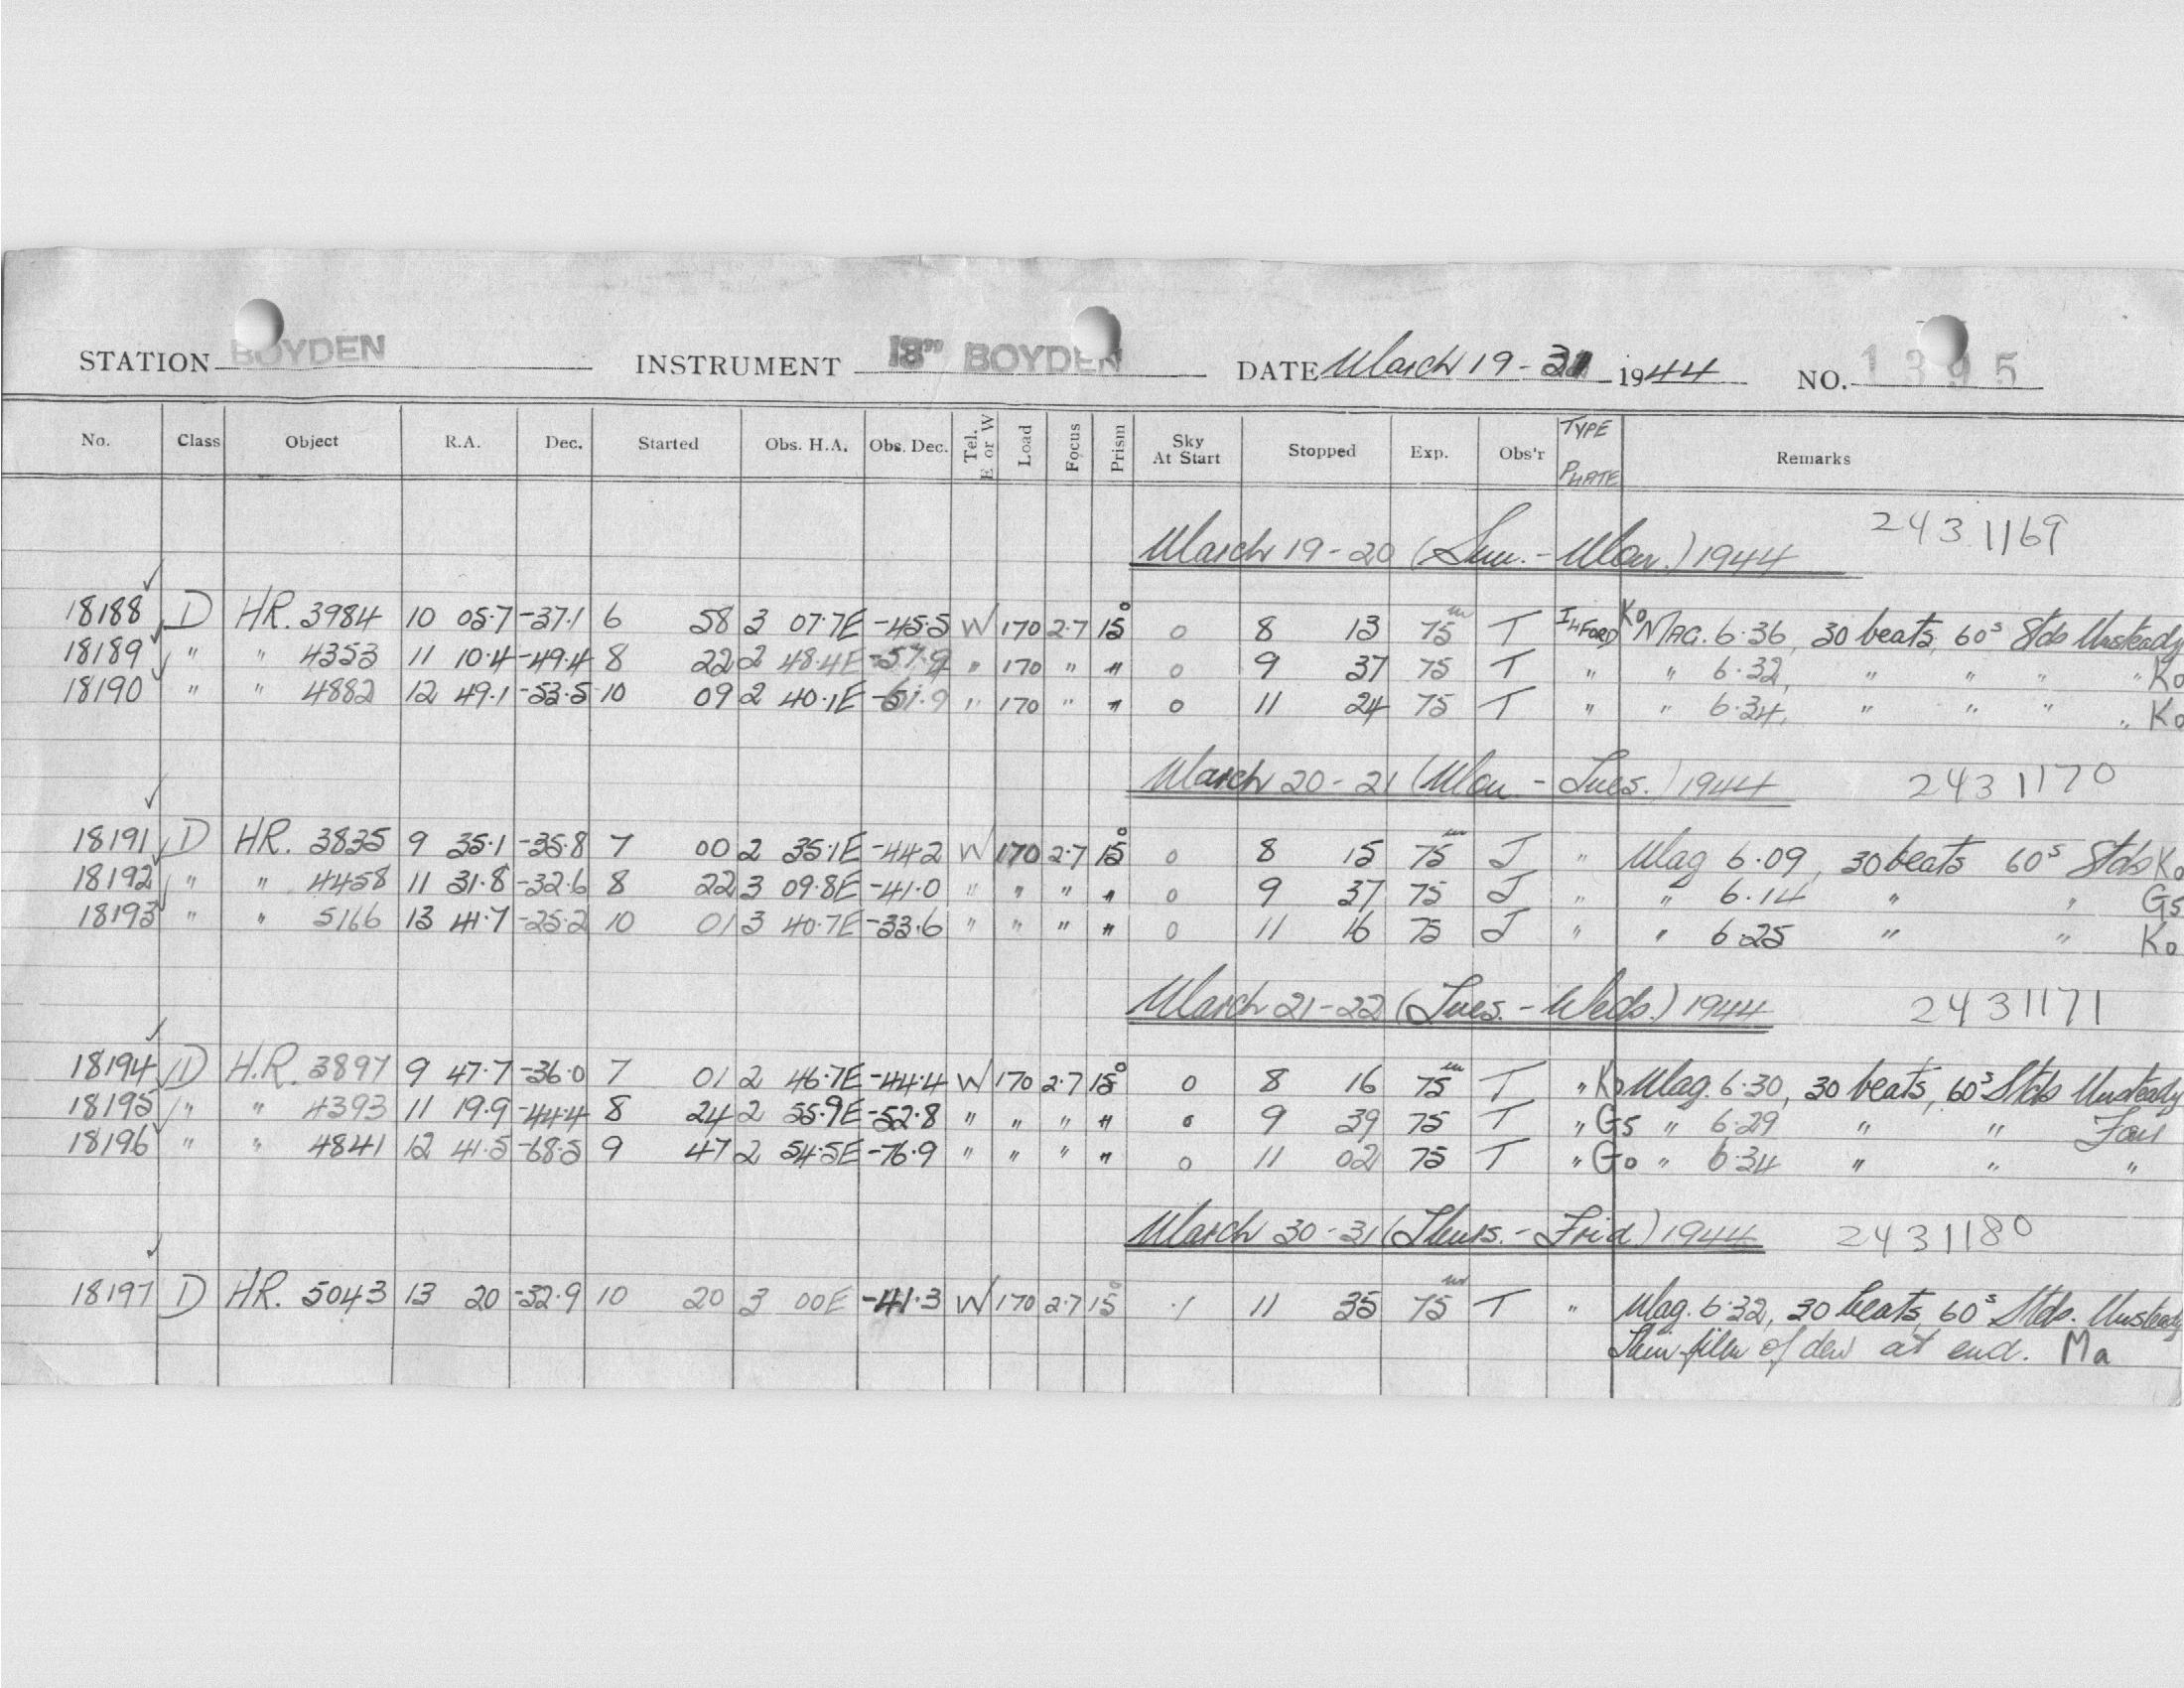 STATION BOYDEN INSTRUMENT 18" BOYDEN DATE March 19-31 1944 NO. 1395
No. Class Object R.A. Dec. Started Obs. H.A. Obs. Dec. Tel. E or W Load Focus Prism Sky At Start Stopped Exp. Obs'r TYPE PLATE Remarks
March 19-20 (Sun.-Mon.) 1944 2431169
18188 D HR. 3984 10 05.7 -37.1 6 58 3 07.7E -45.5 W 170 2.7 15° 0 8 13 75m T ILFORD Ko MAG. 6.36, 30 beats, 60s Stds Unsteady
18189 " " 4353 11 10.4 -49.4 8 22 2 48.4E " 170 " " 0 9 37 75 T " " 6.32, " " " " Ko
18190 " " 4882 12 49.1 -53.5 10 09 2 40.1E -61.9 " 170 " " 0 11 24 75 T " " 6.34, " " " " Ko
March 20-21 (Mon.-Tues.) 1944 2431170
18191 D HR. 3835 9 35.1 -35.8 7 00 2 35.1E -44.2 W 170 2.7 15° 0 8 15 75m J " Mag 6.09, 30 beats 60s Stds Ko
18192 " " 4458 11 31.8 -32.6 8 22 3 09.8E -41.0 " " " " 0 9 37 75 J " " 6.14 " " Gs
18193 " " 5166 13 41.7 -25.2 10 01 3 40.7E -33.6 " " " " 0 11 16 75 J " " 6.25 " " Ko
March 21-22 (Tues.-Weds.) 1944 2431171
18194 D H.R. 3897 9 47.7 -36.0 7 01 2 46.7E -44.4 W 170 2.7 15° 0 8 16 75m T " Ko Mag. 6.30, 30 beats, 60s Stds Unsteady
18195 " " 4393 11 19.9 -44.4 8 24 2 55.9E -52.8 " " " " 0 9 39 75 T " G5 " 6.29 " " Fair
18196 " " 4841 12 41.5 -68.5 9 47 2 54.5E -76.9 " " " " 0 11 02 75 T " Go " 6.34 " " "
March 30-31 (Thurs.-Frid.) 1944 2431180
18197 D HR. 5043 13 20 -32.9 10 20 3 00E -41.3 W 170 2.7 15° .1 11 35 75m T " Mag. 6.32, 30 beats, 60s Stds. Unsteady
Thin film of dew at end. Ma